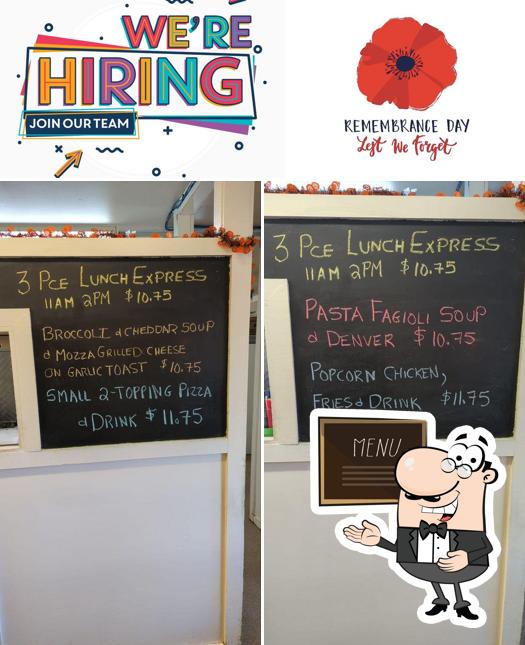 WE'RE
HIRING
JOIN OUR TEAM
REMEMBRANCE DAY
Lest We Forget
3 PCE LUNCH EXPRESS
11AM 2PM $10.75
BROCCOLI & CHEDDAR SOUP
& MOZZA GRILLED CHEESE
ON GARLIC TOAST $10.75
SMALL 2-TOPPING PIZZA
& DRINK $11.75
3 PCE LUNCH EXPRESS
11AM 2PM $10.75
PASTA FAGIOLI SOUP
& DENVER $10.75
POPCORN CHICKEN,
FRIES & DRINK $11.75
MENU